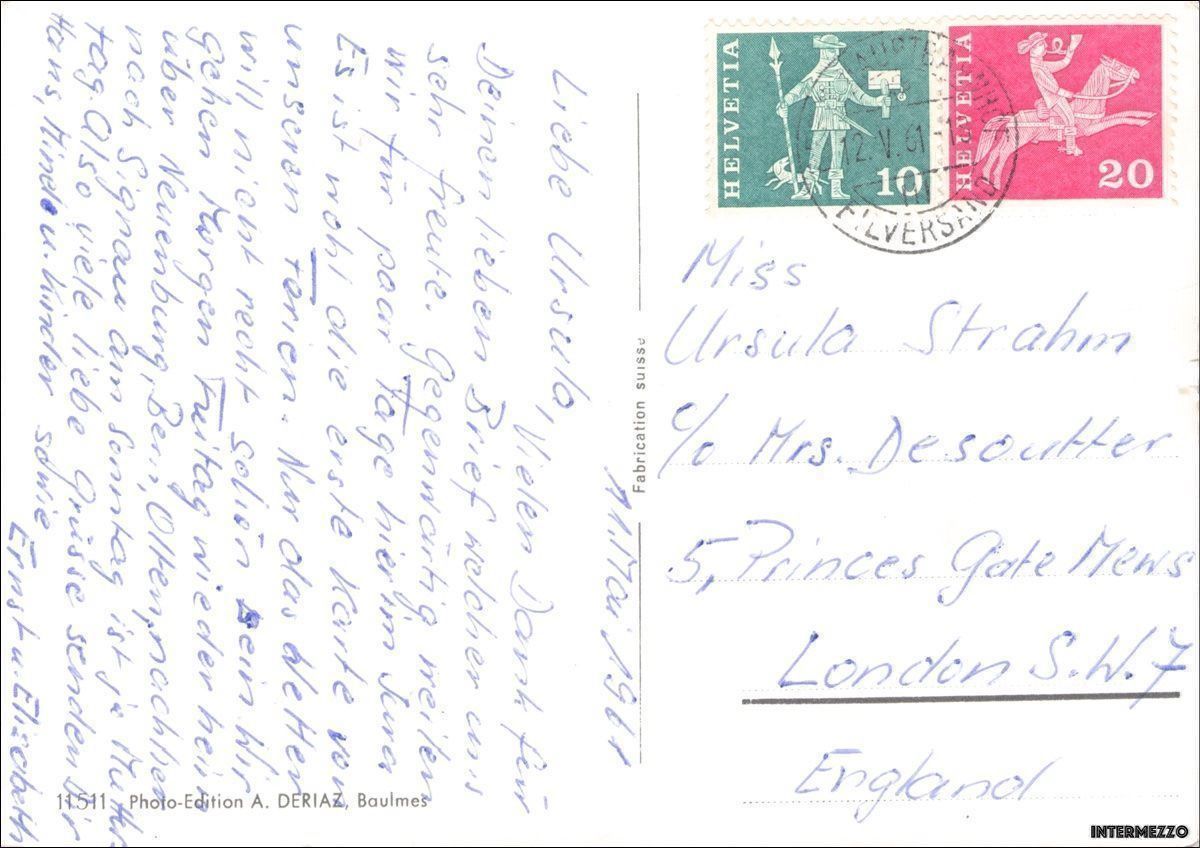 11. Mai 1961
Liebe Ursula, Vielen Dank für
Deinen lieben Brief welcher uns
sehr freute. Gegenwärtig weilen
wir für paar Tage hier im Jura
Es ist wohl die erste Karte von
unseren Farien. Nur das Wetter
will nicht recht schön sein Wir
gehen Morgen Freitag wieder heim
über Neuenburg, Bern, Olten, nachher
nach Signau am Sonntag ist ja Mutter
tag. Also viele liebe Grüsse senden Dir
Hans, Mineli u. Kinder sowie
Ernst u. Elisabeth
11511 Photo-Edition A. DERIAZ, Baulmes
Fabrication suisse
HELVETIA 10
HELVETIA 20
12.V.61
EILVERSAND
Miss
Ursula Strahm
c/o Mrs. Desoutter
5, Princes Gate Mews
London S.W.7
England
INTERMEZZO